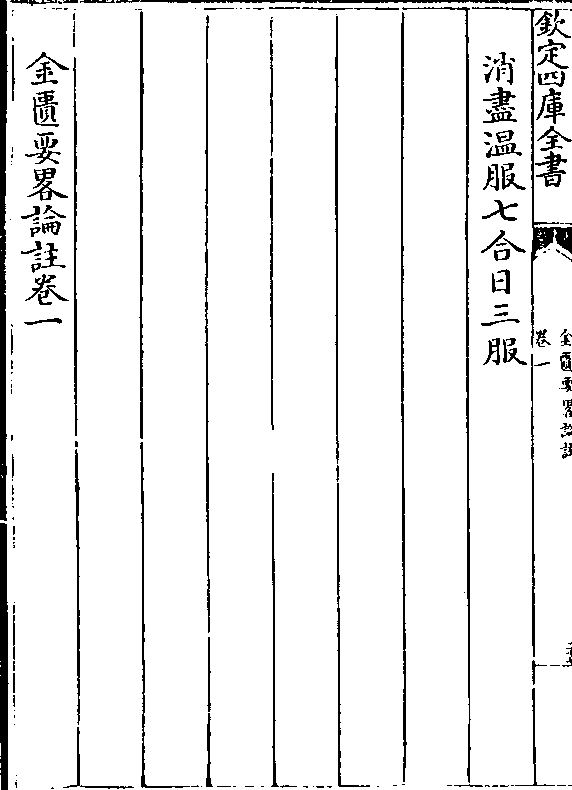 欽定四庫全書
金匱要畧論註
卷一
消盡温服七合日三服
金匱要畧論註卷一